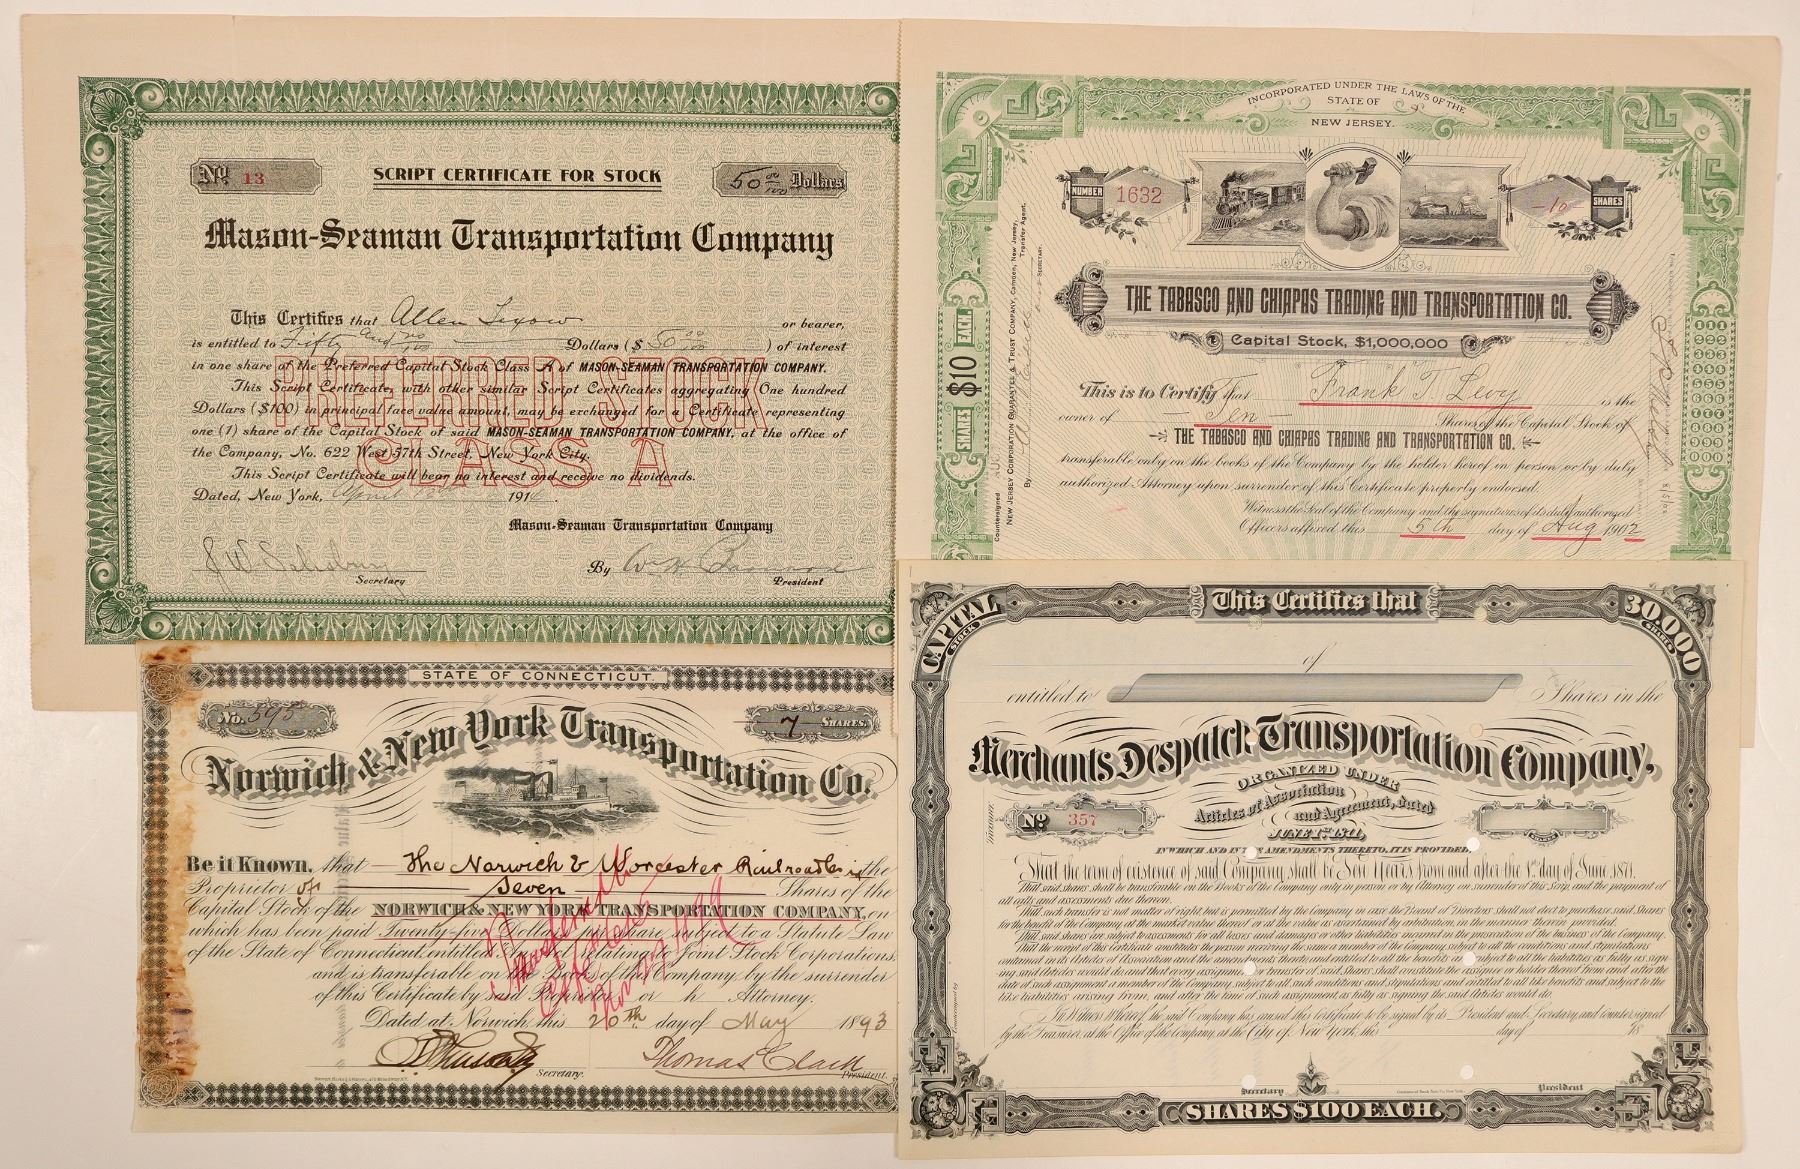 No. 13
SCRIPT CERTIFICATE FOR STOCK
50 00/100 Dollars
Mason-Seaman Transportation Company
This Certifies that Allen Lexow or bearer,
is entitled to Fifty and no/100 Dollars ($ 50 00/100 ) of interest
in one share of the Preferred Capital Stock Class A of MASON-SEAMAN TRANSPORTATION COMPANY.
This Script Certificate, with other similar Script Certificates aggregating One hundred
Dollars ($100) in principal face value amount, may be exchanged for a Certificate representing
one (1) share of the Capital Stock of said MASON-SEAMAN TRANSPORTATION COMPANY, at the office of
the Company, No. 622 West 57th Street, New York City.
This Script Certificate will bear no interest and receive no dividends.
Dated, New York, April 191
PREFERRED STOCK
CLASS A
Mason-Seaman Transportation Company
J W Salisbury
Secretary
By
President
INCORPORATED UNDER THE LAWS OF THE
STATE OF
NEW JERSEY.
NUMBER
1632
-10-
SHARES
THE TABASCO AND CHIAPAS TRADING AND TRANSPORTATION CO.
Capital Stock, $1,000,000
This is to Certify that Frank T Levy is the
owner of Ten Shares of the Capital Stock of
THE TABASCO AND CHIAPAS TRADING AND TRANSPORTATION CO.
transferable only on the books of the Company by the holder hereof in person or by duly
authorized Attorney upon surrender of this Certificate properly endorsed.
Witness the Seal of the Company and the signatures of its duly authorized
Officers affixed this 5th day of Aug 1902
SHARES $10 EACH.
Countersigned
NEW JERSEY CORPORATION GUARANTEE & TRUST COMPANY, Camden, New Jersey,
Transfer Agent.
By
SECRETARY.
111
222
333
444
555
666
777
888
999
000
STATE OF CONNECTICUT.
No. 595
7 SHARES.
Norwich & New York Transportation Co.
Be it Known, that The Norwich & Worcester Railroad Co is the
Proprietor of Seven Shares of the
Capital Stock of the NORWICH & NEW YORK TRANSPORTATION COMPANY, on
which has been paid Twenty-five Dollars per share, subject to a Statute Law
of the State of Connecticut, entitled An Act relating to Joint Stock Corporations,
and is transferable on the Books of the Company by the surrender
of this Certificate by said Proprietor or h Attorney.
Dated at Norwich, this 20th day of May 1893
Secretary.
Thomas Clark
President.
CAPITAL
STOCK
This Certifies that
30,000
SHARES
of
entitled to Shares in the
Merchants Despatch Transportation Company,
ORGANIZED UNDER
Articles of Association
and Agreement, dated
JUNE 1ST 1871,
No 357
SHARES
IN WHICH AND IN THE AMENDMENTS THERETO, IT IS PROVIDED,
That the term of existence of said Company shall be Years from and after the 1st day of June, 1871.
That said shares shall be transferable on the Books of the Company only in person or by Attorney on surrender of this Scrip, and the payment of
all calls and assessments due thereon.
That such transfer is not matter of right, but is permitted by the Company in case the Board of Directors shall not elect to purchase said Shares
for the benefit of the Company at the market value thereof or at the value as ascertained by arbitration in the manner therein provided.
That said shares are subject to assessments for all losses and damages or other liabilities incurred in the prosecution of the business of the Company.
That the receipt of this certificate constitutes the person receiving the same a member of the Company subject to all the conditions and stipulations
contained in its Articles of Association and the amendments thereto, and entitled to all the benefits and subject to all the liabilities as fully as sign-
ing said Articles would do, and that every assignment or transfer of said Shares shall constitute the assignee or holder thereof from and after the
date of such assignment a member of the Company subject to all such conditions and stipulations and entitled to all like benefits and subject to the
like liabilities arising from, and after the time of such assignment as fully as signing the said Articles would do.
In Witness Whereof, the said Company has caused this certificate to be signed by its President and Secretary, and countersigned
by the Treasurer, at the Office of the Company, at the City of New York, this day of 18
Secretary
President
Treasurer
Countersigned by
SHARES $100 EACH.